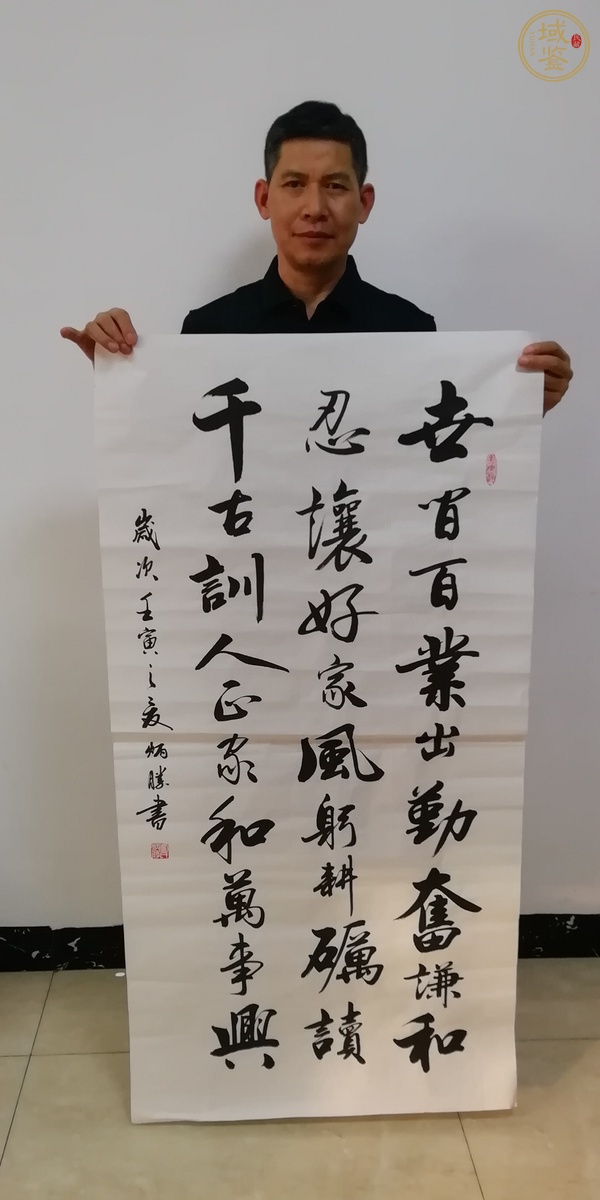 世间百業出勤奮謙和
忍讓好家風躬耕礪讀
千古訓人正家和萬事興
歲次壬寅之夏炳勝書
域鉴